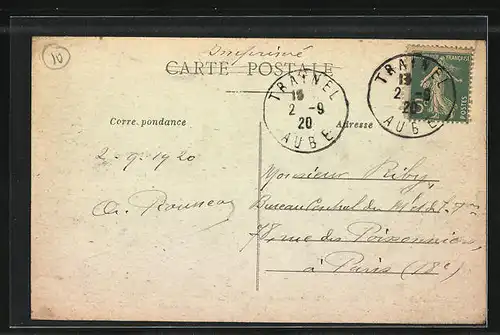 10
Imprimé
CARTE POSTALE
TRAINEL
15
2 - 9
20
AUBE
TRAINEL
15
2 - 9
20
AUBE
POSTES
Correspondance
Adresse
2-9-1920
Monsieur Riby,
Bureau Central du
78, rue des Poissonniers,
à Paris (18e)